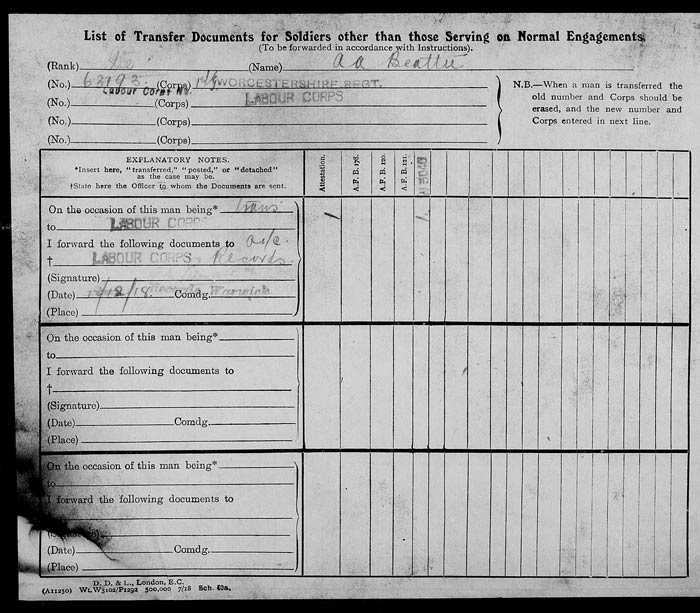 List of Transfer Documents for Soldiers other than those Serving on Normal Engagements.
(To be forwarded in accordance with Instructions).
(Rank) Pte (Name) A A Beattie
(No.) 63193 (Corps) WORCESTERSHIRE REGT.
Labour Corps No.
(No.) (Corps) LABOUR CORPS
(No.) (Corps)
(No.) (Corps)
N.B.—When a man is transferred the
old number and Corps should be
erased, and the new number and
Corps entered in next line.
EXPLANATORY NOTES.
*Insert here, "transferred," "posted," or "detached"
as the case may be.
†State here the Officer to whom the Documents are sent.
Attestation.
A.F. B. 178.
A.F. B. 120.
A.F. B. 121.
On the occasion of this man being* trans
to LABOUR CORPS
I forward the following documents to o/c.
† LABOUR CORPS Records.
(Signature)
(Date) 12/18. Records Comdg. Warwick
(Place)
On the occasion of this man being*
to
I forward the following documents to
†
(Signature)
(Date) Comdg.
(Place)
On the occasion of this man being*
to
I forward the following documents to
(Date) Comdg.
(Place)
D. D. & L., London, E.C.
(A11250) Wt.W5102/P1292 500,000 7/18 Sch. 40a.